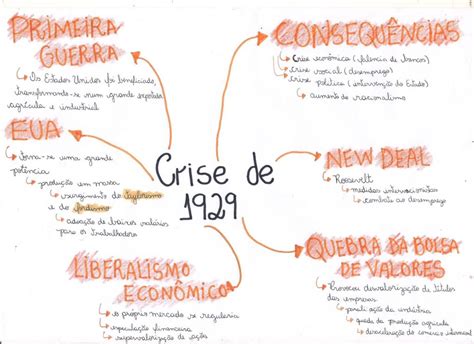 PRIMEIRA
GUERRA
Os Estados Unidos foi beneficiado,
transformando-se num grande
agrícola e industrial
EUA
torna-se uma grande
potência
produção em massa
surgimento do taylorismo
e do fordismo
adoção de baixos salários
para os trabalhadores
LIBERALISMO
ECONÔMICO
o próprio mercado se regularia
especulação financeira
supervalorização de ações
Crise de
1929
CONSEQUÊNCIAS
Crise econômica (falência de bancos)
crise social (desemprego)
crise política (intervenção do Estado)
aumento do nacionalismo
NEW DEAL
Roosevelt
medidas intervencionistas
combate ao desemprego
QUEBRA DA BOLSA
DE VALORES
Provocou desvalorização de títulos
das empresas
paralisação da indústria
queda da produção agrícola
desaceleração do comércio